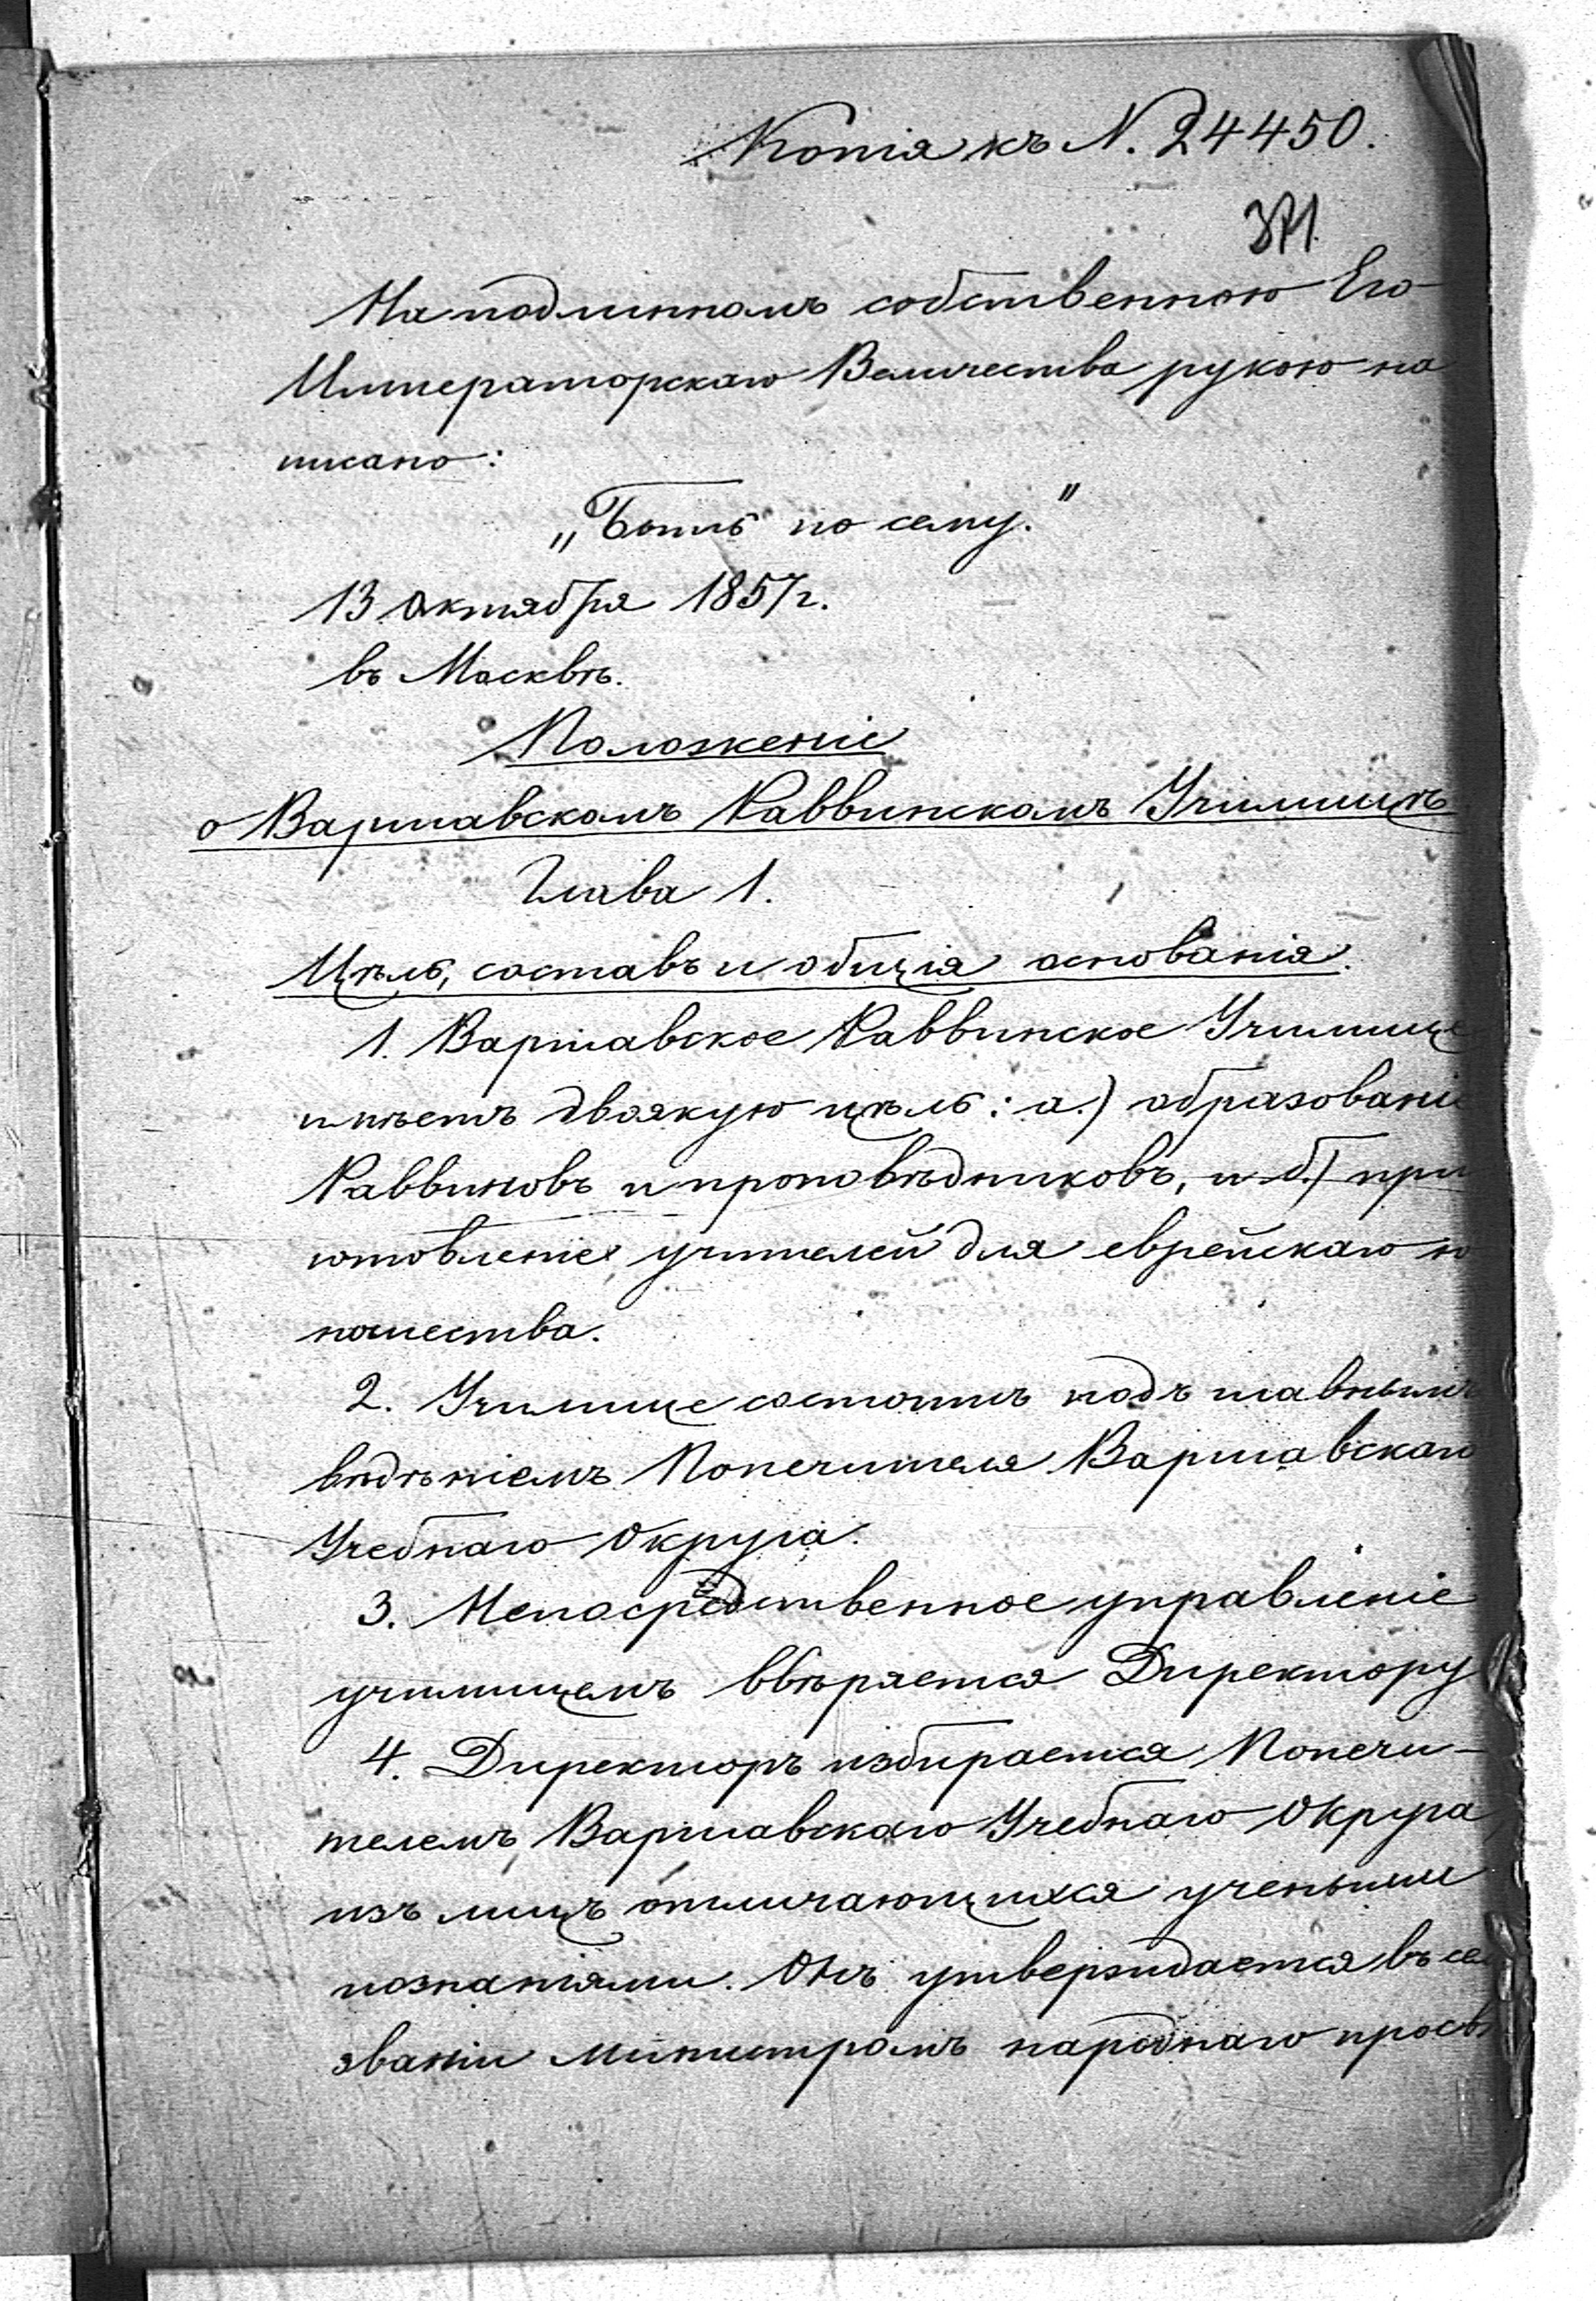 Копія къ N. 24450.
371.
На подлинномъ собственною Его
Императорскаго Величества рукою на
писано:
„Быть по сему."
13 Октября 1857 г.
въ Москвѣ.
Положеніе
о Варшавскомъ Раввинскомъ Училищѣ
Глава 1.
Цѣль, составъ и общія основанія.
1. Варшавское Раввинское Училище
имѣетъ двоякую цѣль: а.) образованіе
Раввиновъ и проповѣдниковъ, и б.) при
готовленіе учителей для еврейскаго ю
ношества.
2. Училище состоитъ подъ главнымъ
вѣдѣніемъ Попечителя Варшавскаго
Учебнаго Округа.
3. Непосредственное управленіе
училищемъ ввѣряется Директору
4. Директоръ избирается Попечи-
телемъ Варшавскаго Учебнаго Округа,
изъ лицъ отличающихся учеными
познаніями. Онъ утверждается въ се
званіи Министромъ народнаго просв